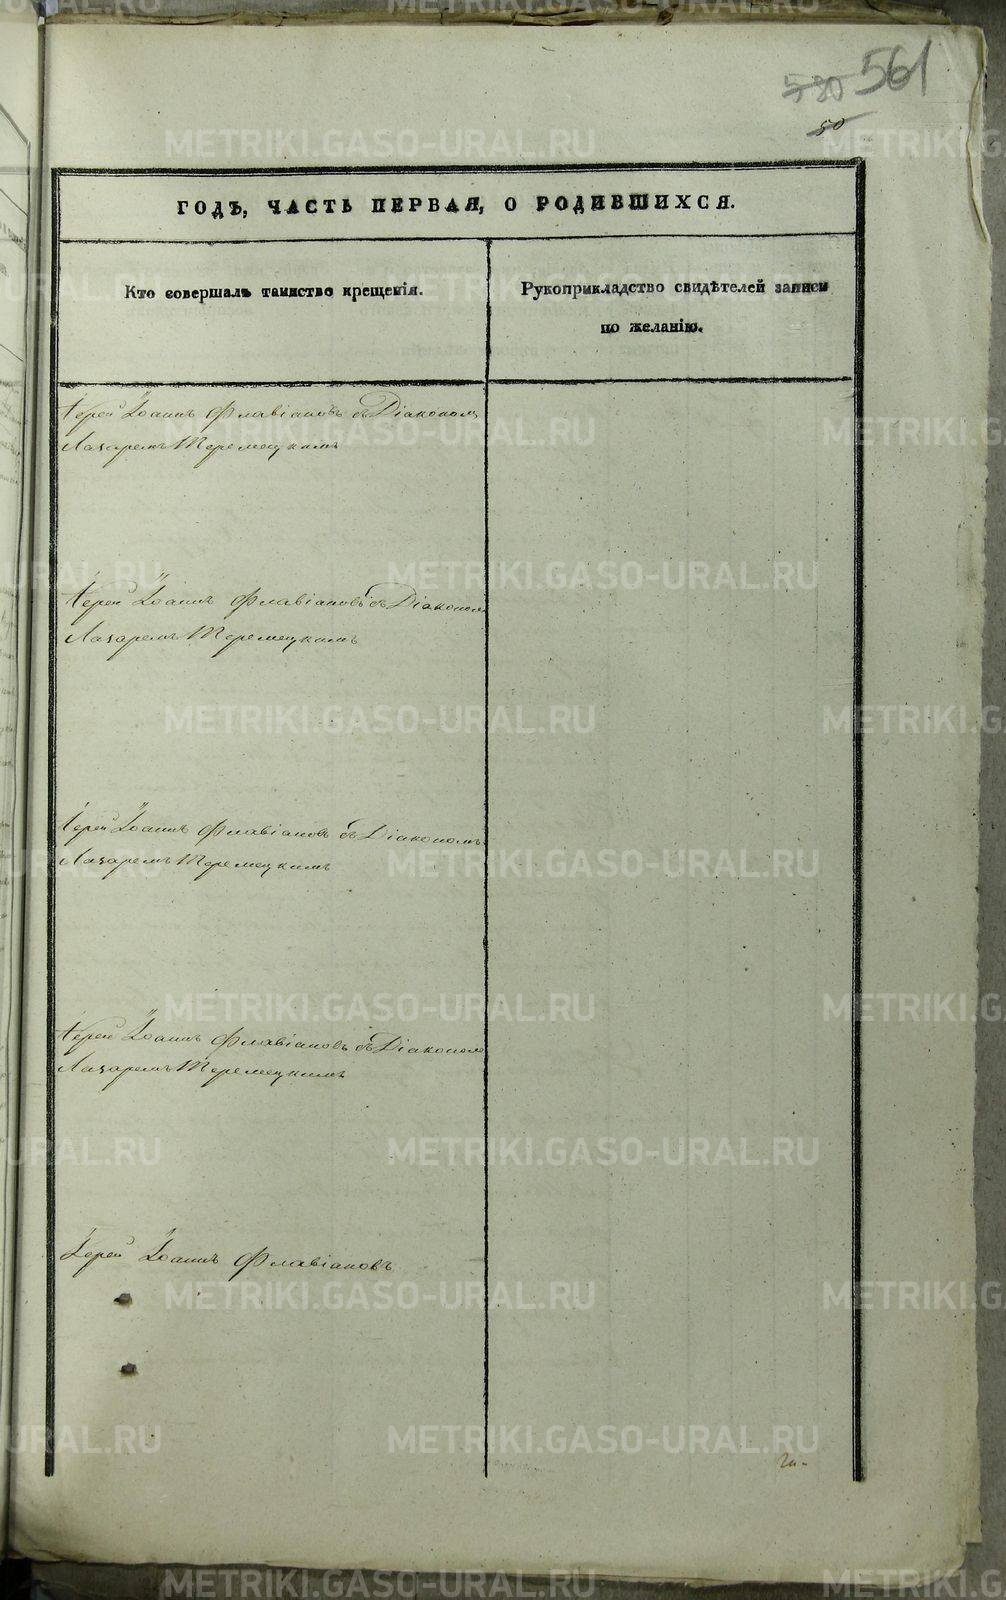 580 561
50
ГОДЪ, ЧАСТЬ ПЕРВАЯ, О РОДИВШИХСЯ.
Кто совершалъ таинство крещенія.
Рукоприкладство свидѣтелей записи
по желанію.
Іерей Іоаннъ Флавіановъ съ Діакономъ
Лазаремъ Теремецкимъ
Іерей Іоаннъ Флавіановъ съ Діакономъ
Лазаремъ Теремецкимъ
Іерей Іоаннъ Флавіановъ съ Діакономъ
Лазаремъ Теремецкимъ
Іерей Іоаннъ Флавіановъ съ Діакономъ
Лазаремъ Теремецкимъ
Іерей Іоаннъ Флавіановъ
METRIKI.GASO-URAL.RU